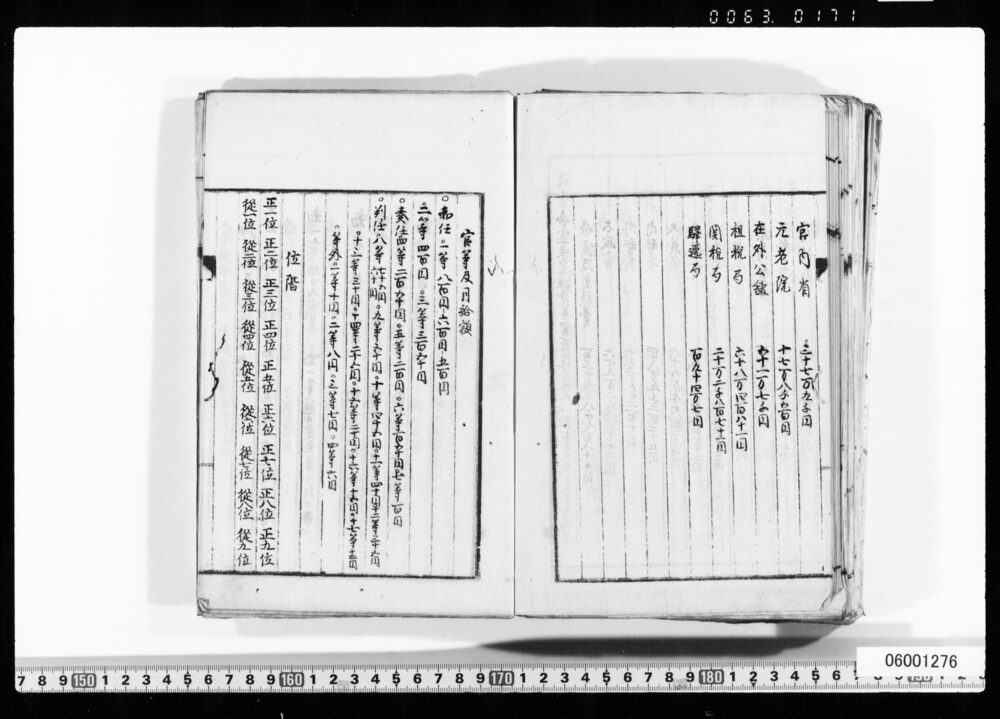 0063. 0171
宮内省 三十七万九千円
元老院 十七万八千六百円
在外公館 六十一万七千円
租税局 六十八万四百八十一円
関税局 二十万二千八百七十二円
駅逓局 百九十四万七円
官等及月給額
○勅任○一等八百円六百円五百円
二等四百円○三等三百五十円
○奏任四等二百五十円○五等二百円○六等百五十円七等百円
○判任八等七十五円六十円○九等五十円○十等四十五円○十一等四十円十二等三十六円
○十三等三十円○十四等二十五円○十五等二十円○十六等十五円○十七等十二円
○等外○一等十円○二等八円○三等七円○四等六円
位階
正一位 正二位 正三位 正四位 正五位 正六位 正七位 正八位 正九位
従一位 従二位 従三位 従四位 従五位 従六位 従七位 従八位 従九位
06001276
7 8 9 150 1 2 3 4 5 6 7 8 9 160 1 2 3 4 5 6 7 8 9 170 1 2 3 4 5 6 7 8 9 180 1 2